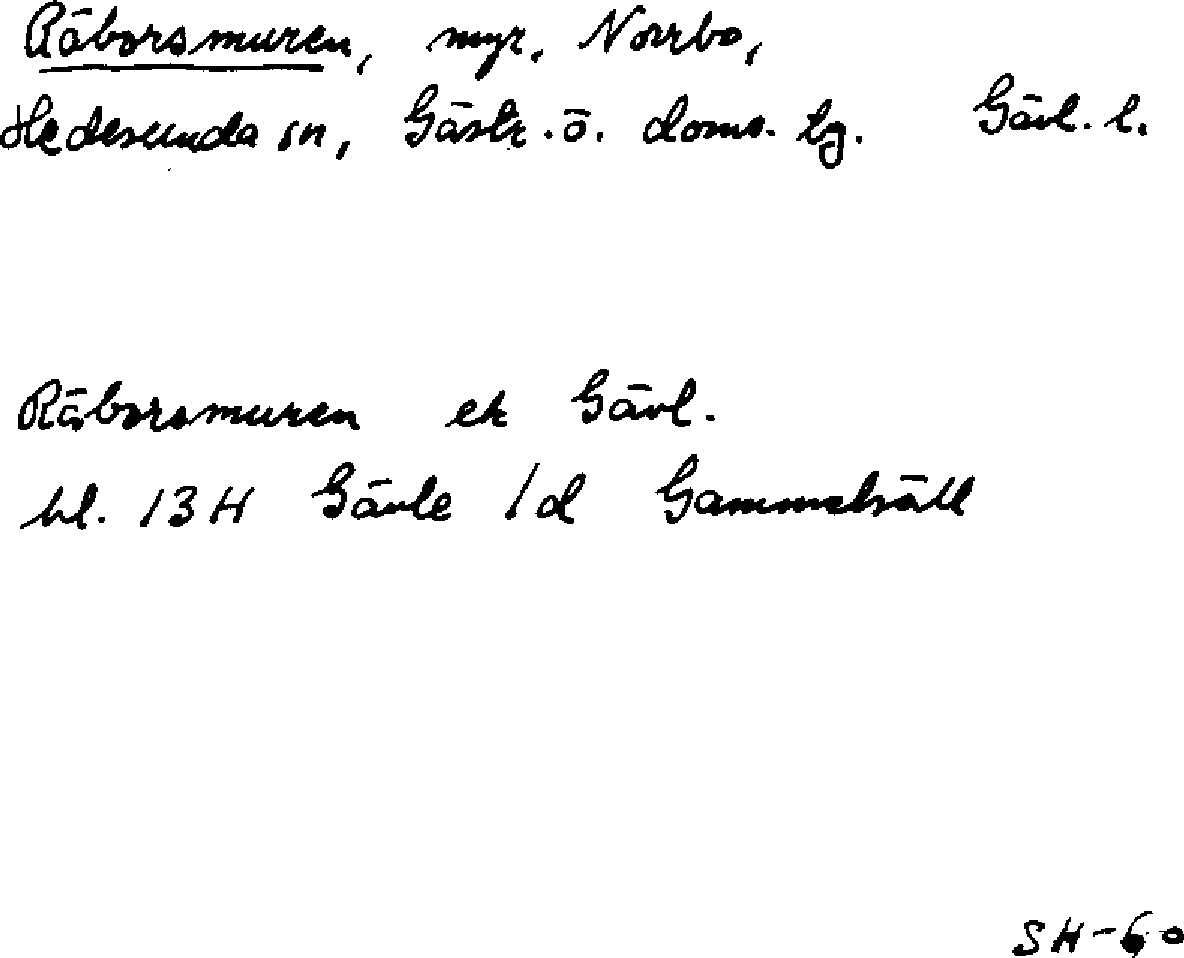 Räborsmuren, myr. Norrbo,
Hedesunda sn, Gästr. ö. doms. tg. Gävl. l.
Räborsmuren ek Gävl.
bl. 13H Gävle 1d Gammelsäll
SH-60